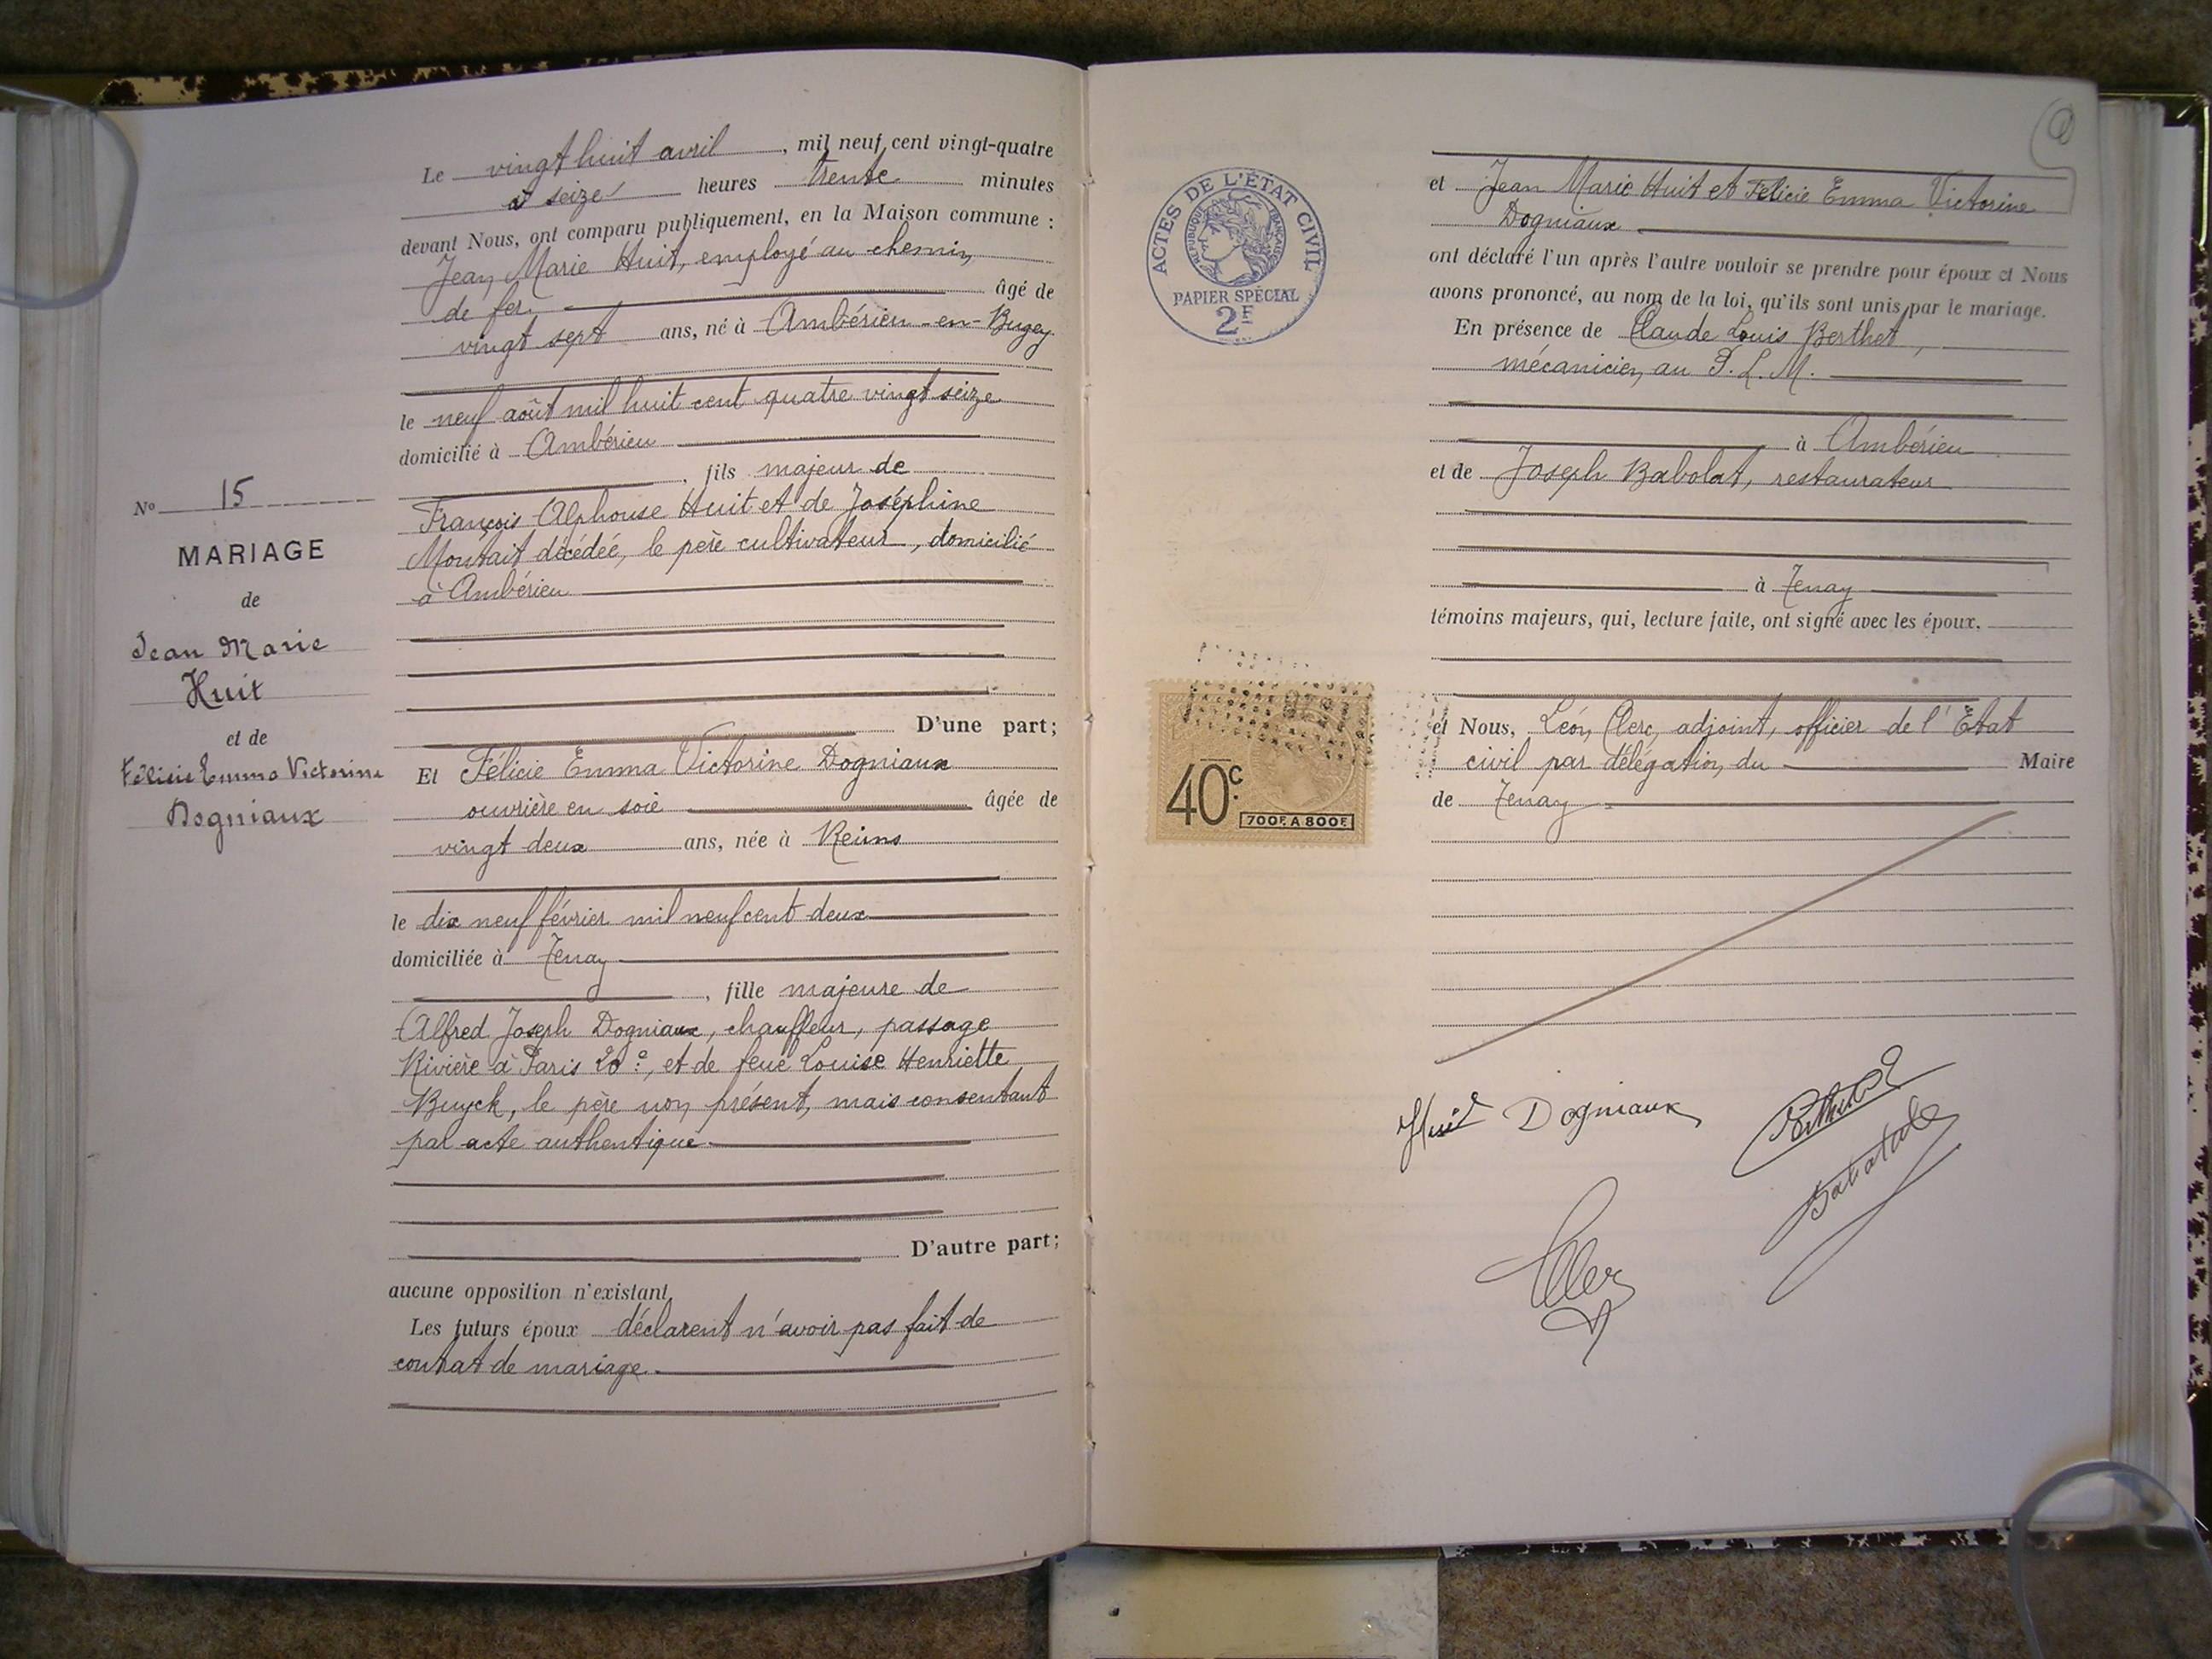 Le vingt huit avril, mil neuf cent vingt-quatre
à seize heures trente minutes
devant Nous, ont comparu publiquement, en la Maison commune :
Jean Marie Huit, employé au chemin
de fer. âgé de
vingt sept ans, né à Ambérieu-en-Bugey
le neuf août mil huit cent quatre vingt seize
domicilié à Ambérieu
, fils majeur de
François Alphonse Huit et de Joséphine
décédée, le père cultivateur, domicilié
à Ambérieu
D'une part;
No 15
MARIAGE
de
Jean Marie
Huit
et de
Félicie Emma Victorine
Dogniaux
Et Félicie Emma Victorine Dogniaux
ouvrière en soie âgée de
vingt deux ans, née à Reims
le dix neuf février mil neuf cent deux
domiciliée à Tenay
, fille majeure de
Alfred Joseph Dogniaux, chauffeur, passage
Rivière à Paris 20e, et de feue Louise Henriette
Buyck, le père non présent, mais consentant
par acte authentique
D'autre part;
aucune opposition n'existant
Les futurs époux déclarent n'avoir pas fait de
contrat de mariage.
ACTES DE L'ÉTAT CIVIL
RÉPUBLIQUE FRANÇAISE
PAPIER SPÉCIAL
2F
40c.
700F. A 800F.
et Jean Marie Huit et Félicie Emma Victorine
Dogniaux
ont déclaré l'un après l'autre vouloir se prendre pour époux et Nous
avons prononcé, au nom de la loi, qu'ils sont unis par le mariage.
En présence de Claude Louis Berthet,
mécanicien au P.L.M.
à Ambérieu
et de Joseph Babolat, restaurateur
à Tenay
témoins majeurs, qui, lecture faite, ont signé avec les époux.
et Nous, Léon Clerc, adjoint, officier de l'Etat
civil par délégation du Maire
de Tenay
Huit Dogniaux